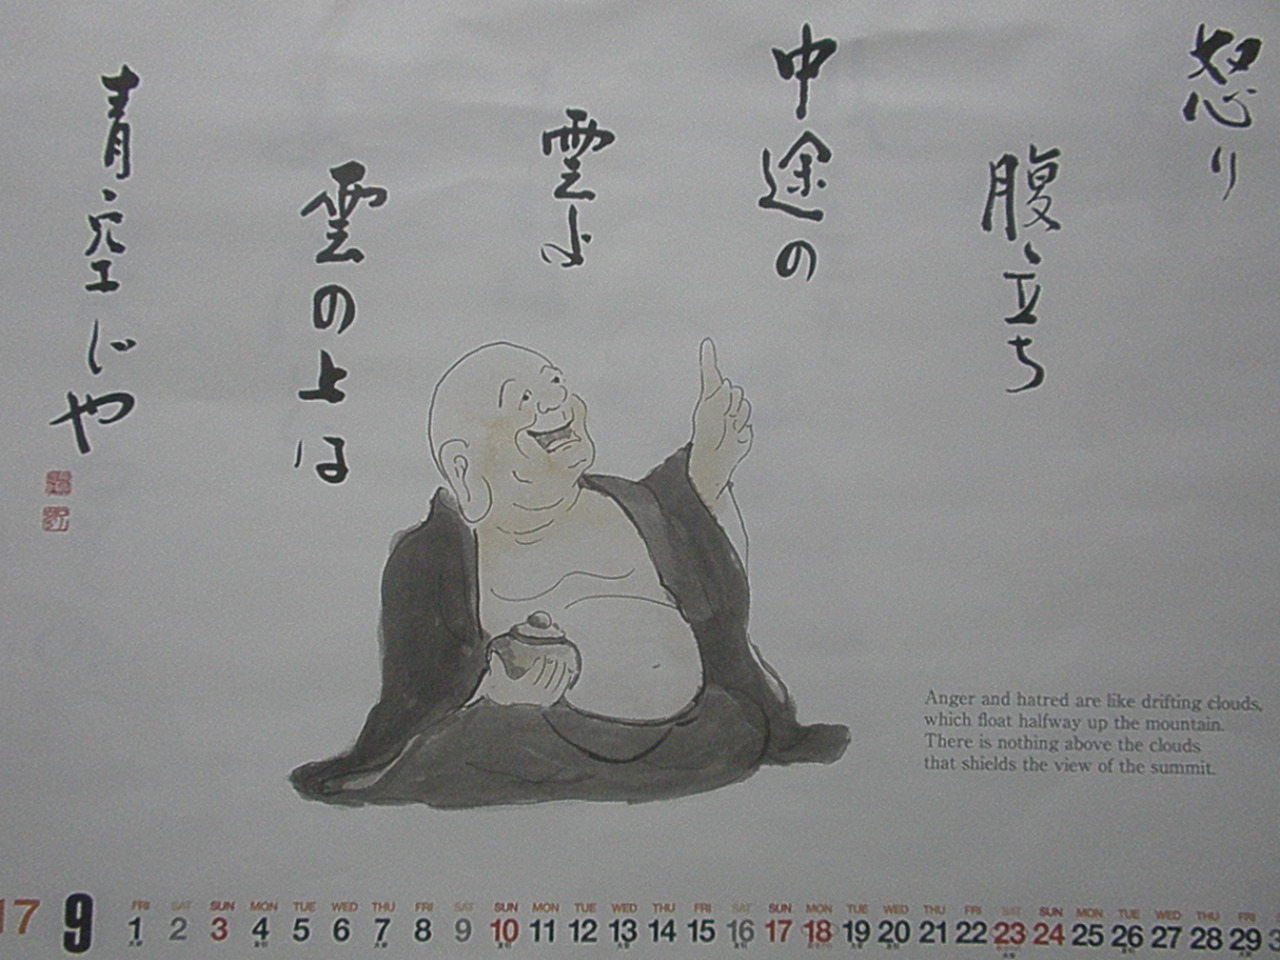 怒り
腹立ち
中途の
雲よ
雲の上は
青空じや
Anger and hatred are like drifting clouds,
which float halfway up the mountain.
There is nothing above the clouds
that shields the view of the summit.
17 9
FRI SAT SUN MON TUE WED THU FRI SAT SUN MON TUE WED THU FRI SAT SUN MON TUE WED THU FRI SAT SUN MON TUE WED THU FRI
1 2 3 4 5 6 7 8 9 10 11 12 13 14 15 16 17 18 19 20 21 22 23 24 25 26 27 28 29 3